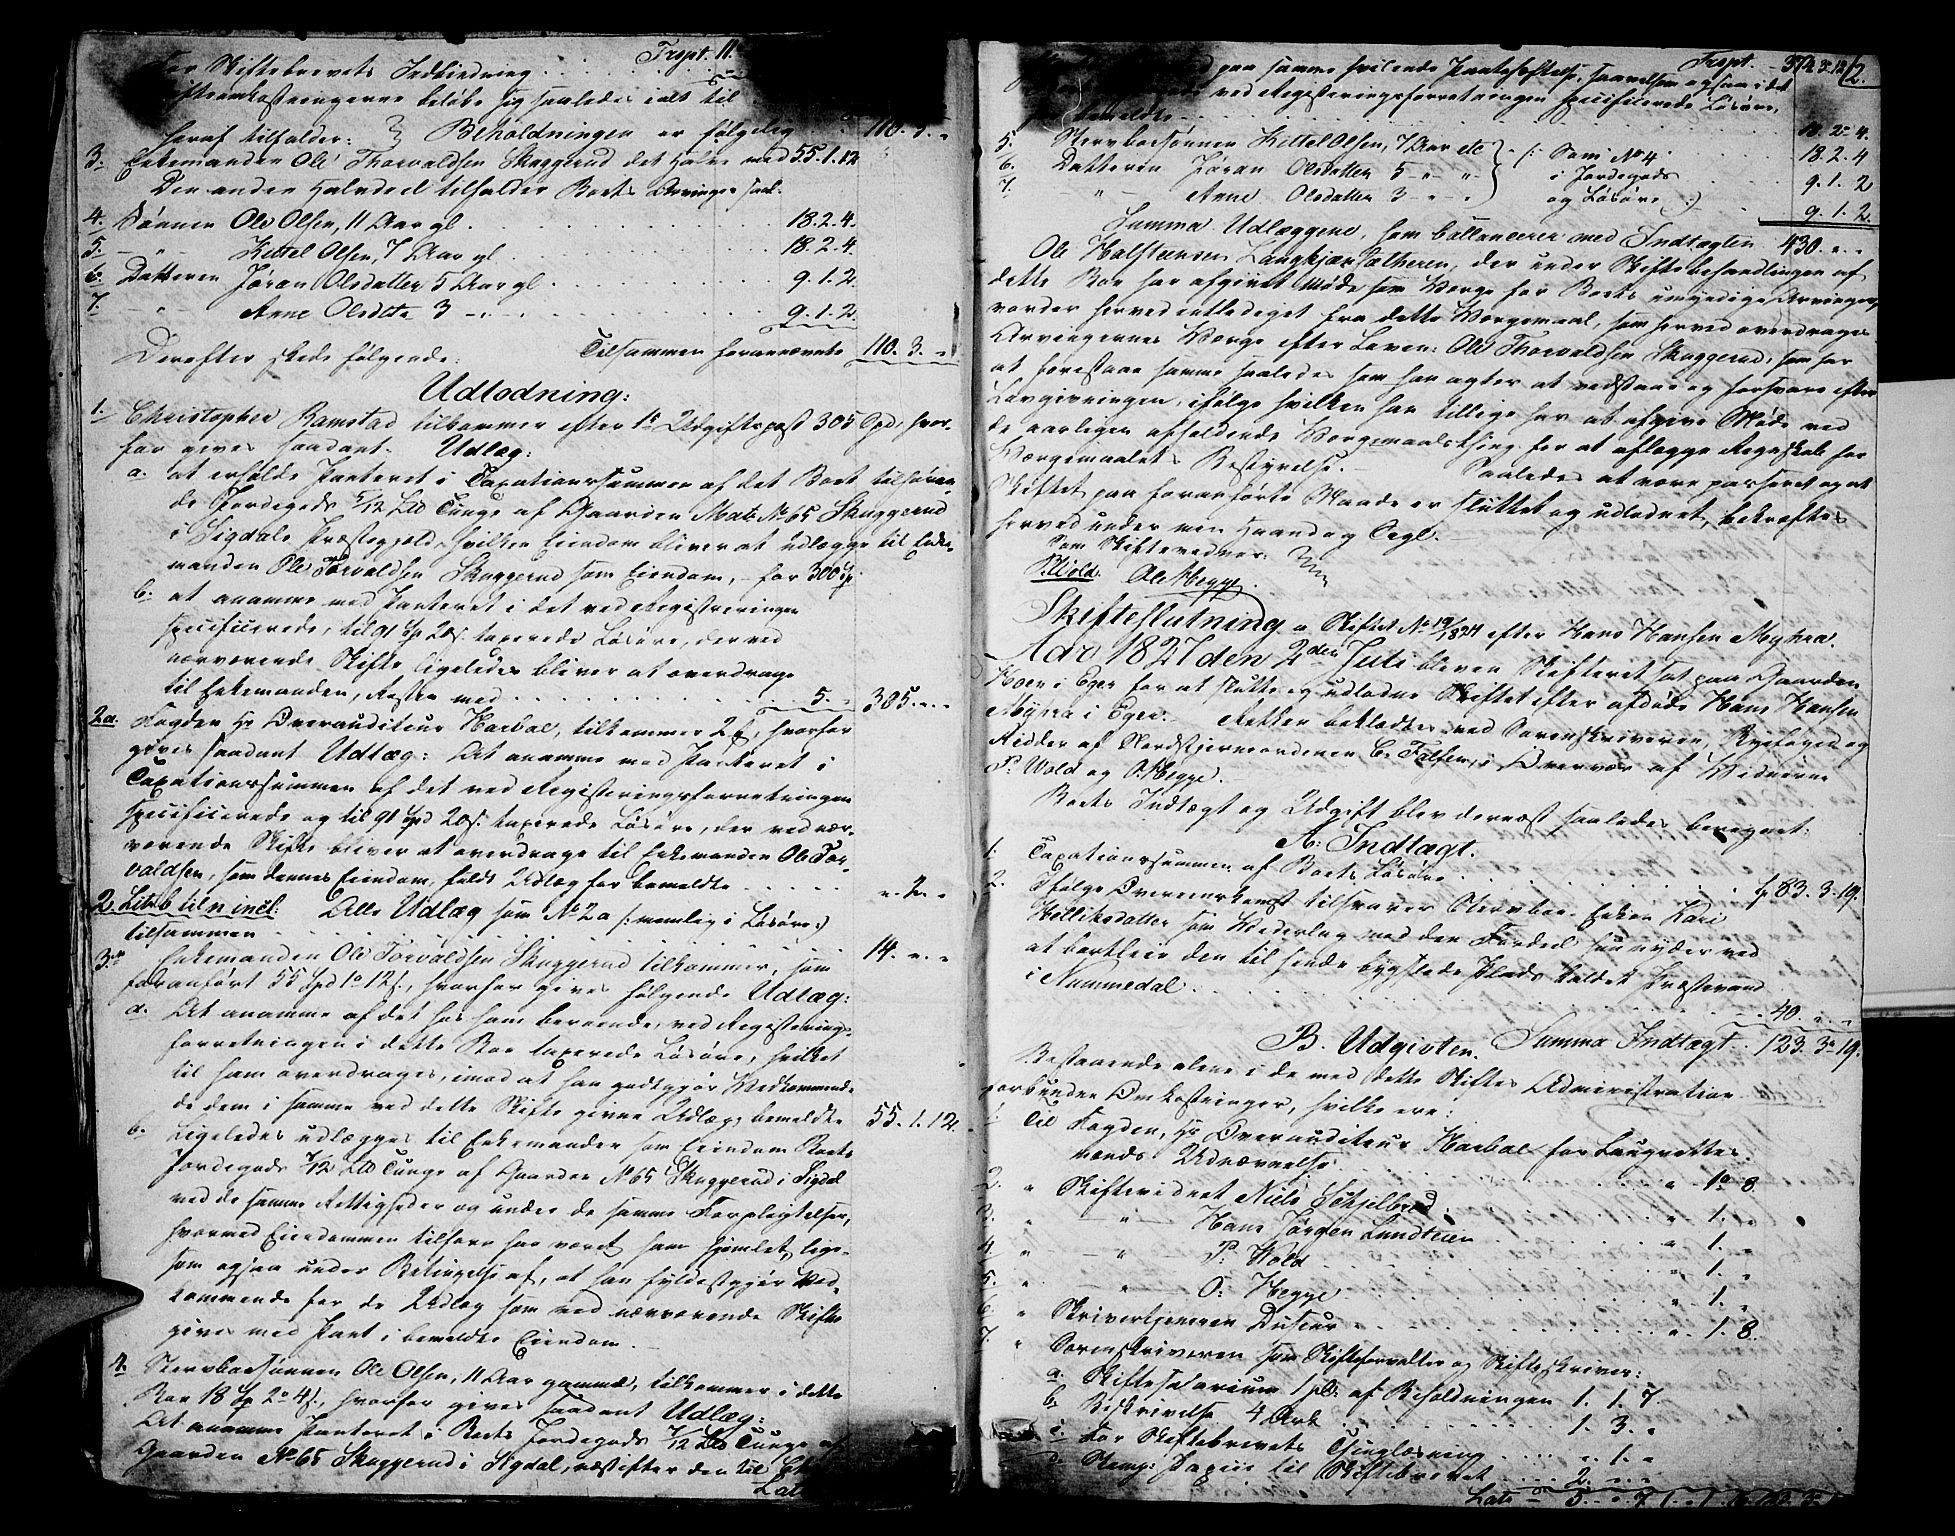 Trspt. 11.
For Skiftebrevets Indbindning
Skifteomkostningerne beløbe sig saaledes ialt til
Heraf tilfalder: Beholdningen er følgelig 110. 3. "
3. Enkemanden Ole Thorvaldsen Skuggerud det halve med 55.1.12
Den anden Halvdeel tilfalder Boets Arvinger saal:
4. Sønnen Ole Olsen, 11 Aar gl. 18.2.4.
5. " Kittel Olsen, 7 Aar gl. 18.2.4.
6. Datteren Jøran Olsdatter 5 Aar gl. 9.1.2.
7. " Anne Olsdatr 3 " " 9.1.2
Derefter skede følgende: Tilsammen forannævnte 110. 3. "
Udlodning:
1. Christopher Ramstad tilkommer efter 1e Udgiftspost 305 Spd, hvor-
for gives saadant Udlæg:
a. at erholde Panteret i Taxationssummen af det Boet tilhøren-
de Jordegods 5/12 Lld Tunge af Gaarden Matr No 65 Skuggerud
i Sigdals Præstegjeld, hvilken Eiendom bliver at udlægge til Enke-
manden Ole Torvaldsen Skuggerud som Eiendom, - for 300 Sp.
b. at anamme med Panteret i det ved Registreringen
specificerede, til 91 Sp 20 s. taxerede Løsøre, der ved
nærværende Skifte ligeledes bliver at overdrage
til Enkemanden, Resten med 5. " 305. " "
2a. Fogden Hr Overauditeur Harboe, tilkommer 2 Sp, hvorfor
gives saadant Udlæg: At anamme med Panteret i
Taxationssummen af det ved Registeringsforretningen
specificerede og til 91 Spd 20 s. taxerede Løsøre, der ved nær-
værende Skifte bliver at overdrage til Enkemanden Ole Tor-
valdsen, som dennes Eiendom, fuldt Udlæg for bemeldte " 2. "
2 Litr b til n incl: Alle Udlæg som No 2a (: nemlig i Løsøre:)
tilsammen 14. " "
3. Enkemanden Ole Torvaldsen Skuggerud tilkommer, som
foranført 55 Spd 1o 12 s., hvorfor gives følgende Udlæg:
a. At anamme af det hos ham beroende, ved Registerings-
forretningen i dette Boe taxerede Løsøre, hvilket
til ham overdrages, imod at han godtgjør Vedkommen-
de dem i samme ved dette Skifte givne Udlæg, bemeldte 55.1.12.
b. Ligeledes udlægges til Enkemanden som Eiendom Boets
Jordegods 5/12 Lld Tunge af Gaarden No 65 Skuggerud i Sigdal
ved de samme Rettigheder og under de samme Forpligtelser,
hvormed Eiendommen tilforn har været ham hjemlet, lige-
som ogsaa under Betingelse af, at han fyldestgjør Ved-
kommende for de Udlæg som ved nærværende Skifte
gives med Pant i bemeldte Eiendom.
4. Stervboesønnen Ole Olsen, 11 Aar gammel, tilkommer i dette
Boe 18 Sp 2o 4 s., hvorfor gives saadant Udlæg:
At anamme Panteret i Boets Jordegods 5/12 Lld Tunge af
Gaarden No 65 Skuggerud i Sigdal, næstefter den til
Lats
Trspt. 374.3.12
2.
paa samme hvilende Panteheftelse, saavelsom ogsaa i det
ved Registeringsforretningen specificerede Løsøre,
bemeldte 18.2.4.
5. Stervboesønnen Kittel Olsen, 7 Aar etc (: Som No 4 18.2.4
6. Datteren Jøran Olsdatter 5 " " i Jordegods 9.1.2
7. " Anne Olsdatter 3 " " og Løsøre :) 9.1.2.
Summa Udlæggene, som ballancerer med Indtægten 430. " "
Ole Halsteensen Langkjærsætheren, der under Skiftebehandlingen af
dette Boe har afgivet Møde som Værge for Boets umyndige Arvinger,
vorder herved entlediget fra dette Værgemaal, som herved overdrages
Arvingernes Værge efter Loven: Ole Thorvaldsen Skuggerud, som har
at forestaae samme saaledes som han agter at vedstaae og forsvare efter
Lovgivningen, ifølge hvilken han tillige har at afgive Møde ved
de aarligen afholdende Værgemaalsthing for at aflægge Regnskab for
Værgemaalets Bestyrelse. Saaledes at være passeret og at
Skiftet paa foranførte Maade er sluttet og udlodnet, bekræftes
herved under min Haand og Segl.
Som Skiftevidner:
P. Wold. Ole Hegge.
Skifteslutning a Skiftet No 19/1824 efter Hans Hansen Myhra.
Aaro 1827 den 2den Juli blev en Skifteret sat paa Gaarden
Hoen i Eger for at slutte og udlodne Skiftet efter afdøde Hans Hansen
Myhra i Eger. Retten beklædtes ved Sorenskriveren,
Ridder af Nordstjerneordenen C. Falsen, i Overvær af Vidnerne
P. Wold og O. Hegge.
Boets Indtægt og Udgift blev dernæst saaledes beregnet:
A: Indtægt.
1. Taxationssummen af Boets Løsøre Sp 83. 3. 19.
2. Ifølge Overeenskomst tilsvarer Stervboe-Enken Kari
Helliksdatter som Vederlag med den Fordeel hun nyder ved
at bortleie den til hende bygslede Plads kaldet Præstevand
i Nummedal 40. " "
Summa Indtægt. 123. 3o 19.
B. Udgivten.
Bestaaende alene i de med dette Skiftes Administration
forbundne Omkostninger, hvilke ere:
1. Til Fogden, Hr Overauditeur Harboe for Laugrettes
mænds Udnævnelse " 1o 8
2. " Skiftevidnet Niels Schjelbred " 1. "
3. " — " — Hans Jørgen Lundteien " 1. "
4. " — " — P. Wold " 1. "
5. " — " — O: Hegge " 1. "
6. " Skrivertjeneren Duseur " 1. 8.
7. " Sorenskriveren som Skifteforvalter og Skifteskriver:
a. Skiftesalarium 1 pCt af Beholdningen 1. 1. 7.
b. Beskrivelse 4 Ark 1. 3. "
c. For Skiftebrevets Thinglæsning " 1. "
d. Stemp: Papiir til Skiftebrevet 2. " "
Lats 5. " 7